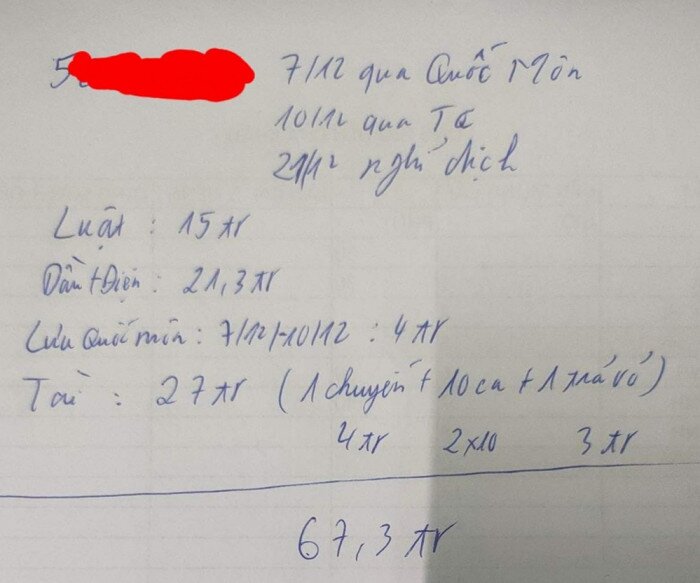 5 7/12 qua Quốc Môn
10/12 qua Ta
21/12 nghỉ dịch
Luật : 15 tr
Dầu + Điện : 21,3 tr
Lưu Quốc môn : 7/12/-10/12 : 4 tr
Tài : 27 tr ( 1 chuyến + 10 ca + 1 trả vỏ )
4 tr 2x10 3 tr
67,3 tr